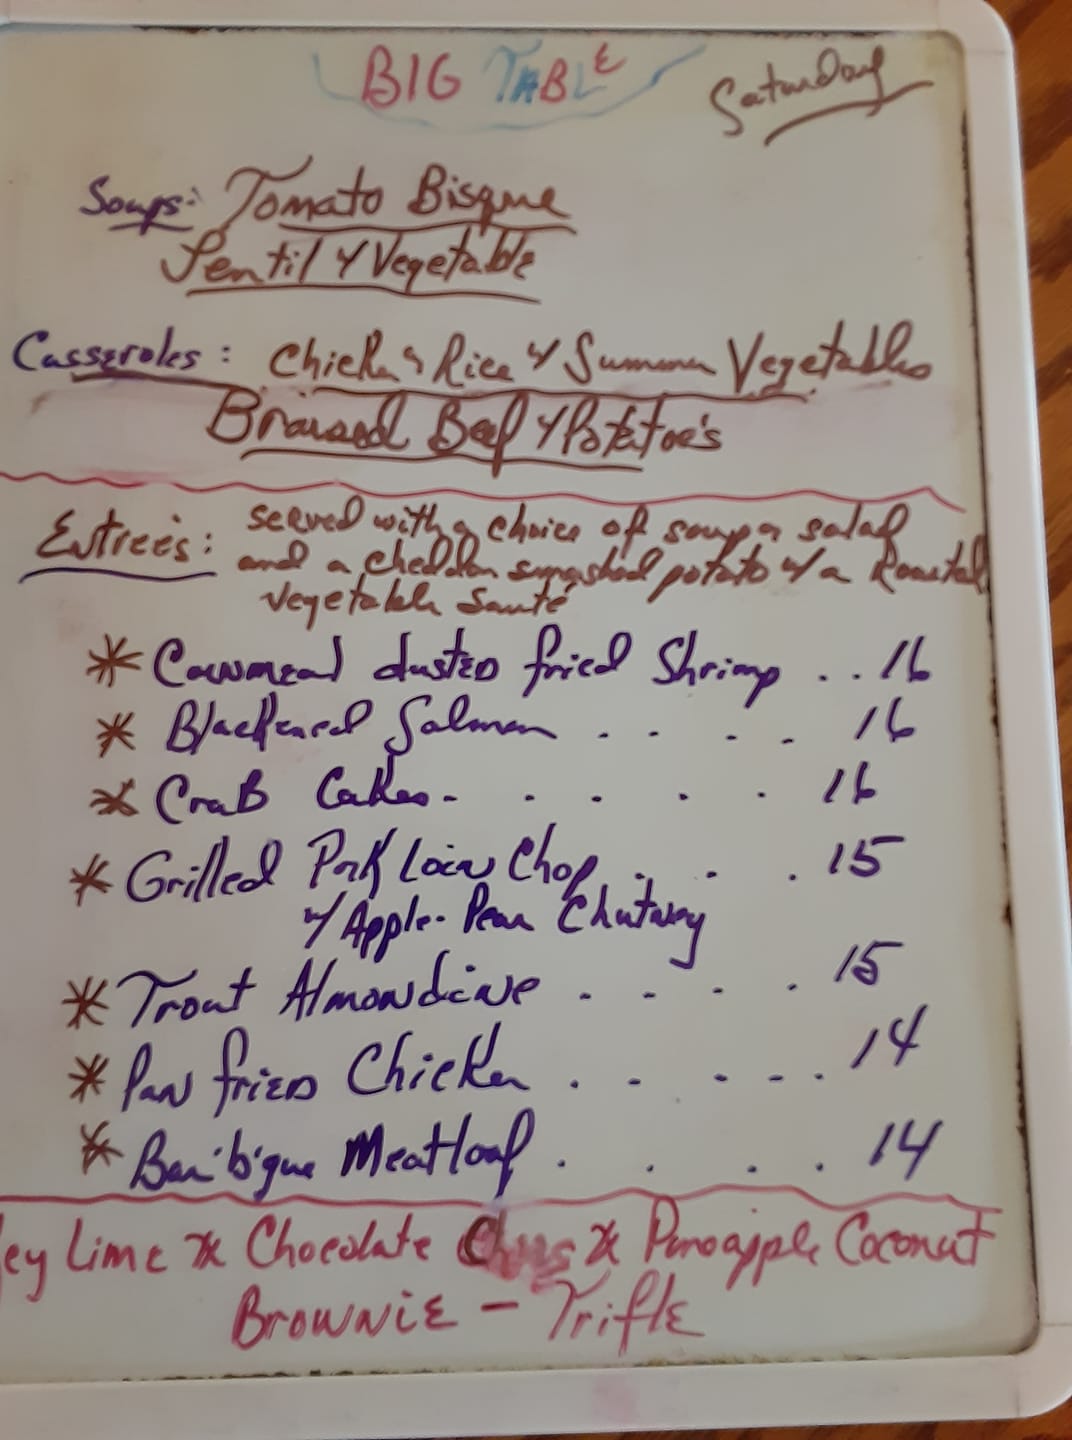 BIG TABLE
Saturday
Soups: Tomato Bisque
Lentil & Vegetable
Casseroles: Chicken & Rice w/ Summer Vegetables
Braised Beef w/ Potatoe's
Entrée's: served with a choice of soup or salad
and a cheddar smashed potato w/ a Roasted
Vegetable Sauté
* Cornmeal dusted fried Shrimp . . 16
* Blackened Salmon . . . . 16
* Crab Cakes . . . . . 16
* Grilled Pork Loin Chop . . . 15
w/ Apple-Pear Chutney
* Trout Almondine . . . . 15
* Pan fried Chicken . . . . . 14
* Bar'b'que Meatloaf . . . . 14
ey Lime * Chocolate * Pineapple Coconut
Brownie - Trifle